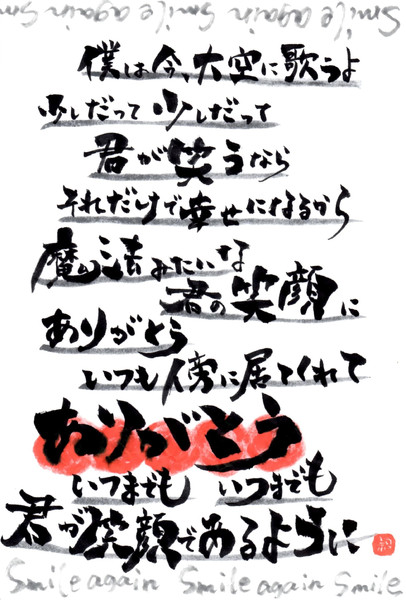 Smile again Smile again Sm
僕は今、大空に歌うよ
少しだって 少しだって
君が笑うなら
それだけで幸せになるから
魔法みたいな
君の笑顔に
ありがとう
いつも傍に居てくれて
ありがとう
いつまでも いつまでも
君が笑顔であるように
Smile again Smile again Smile